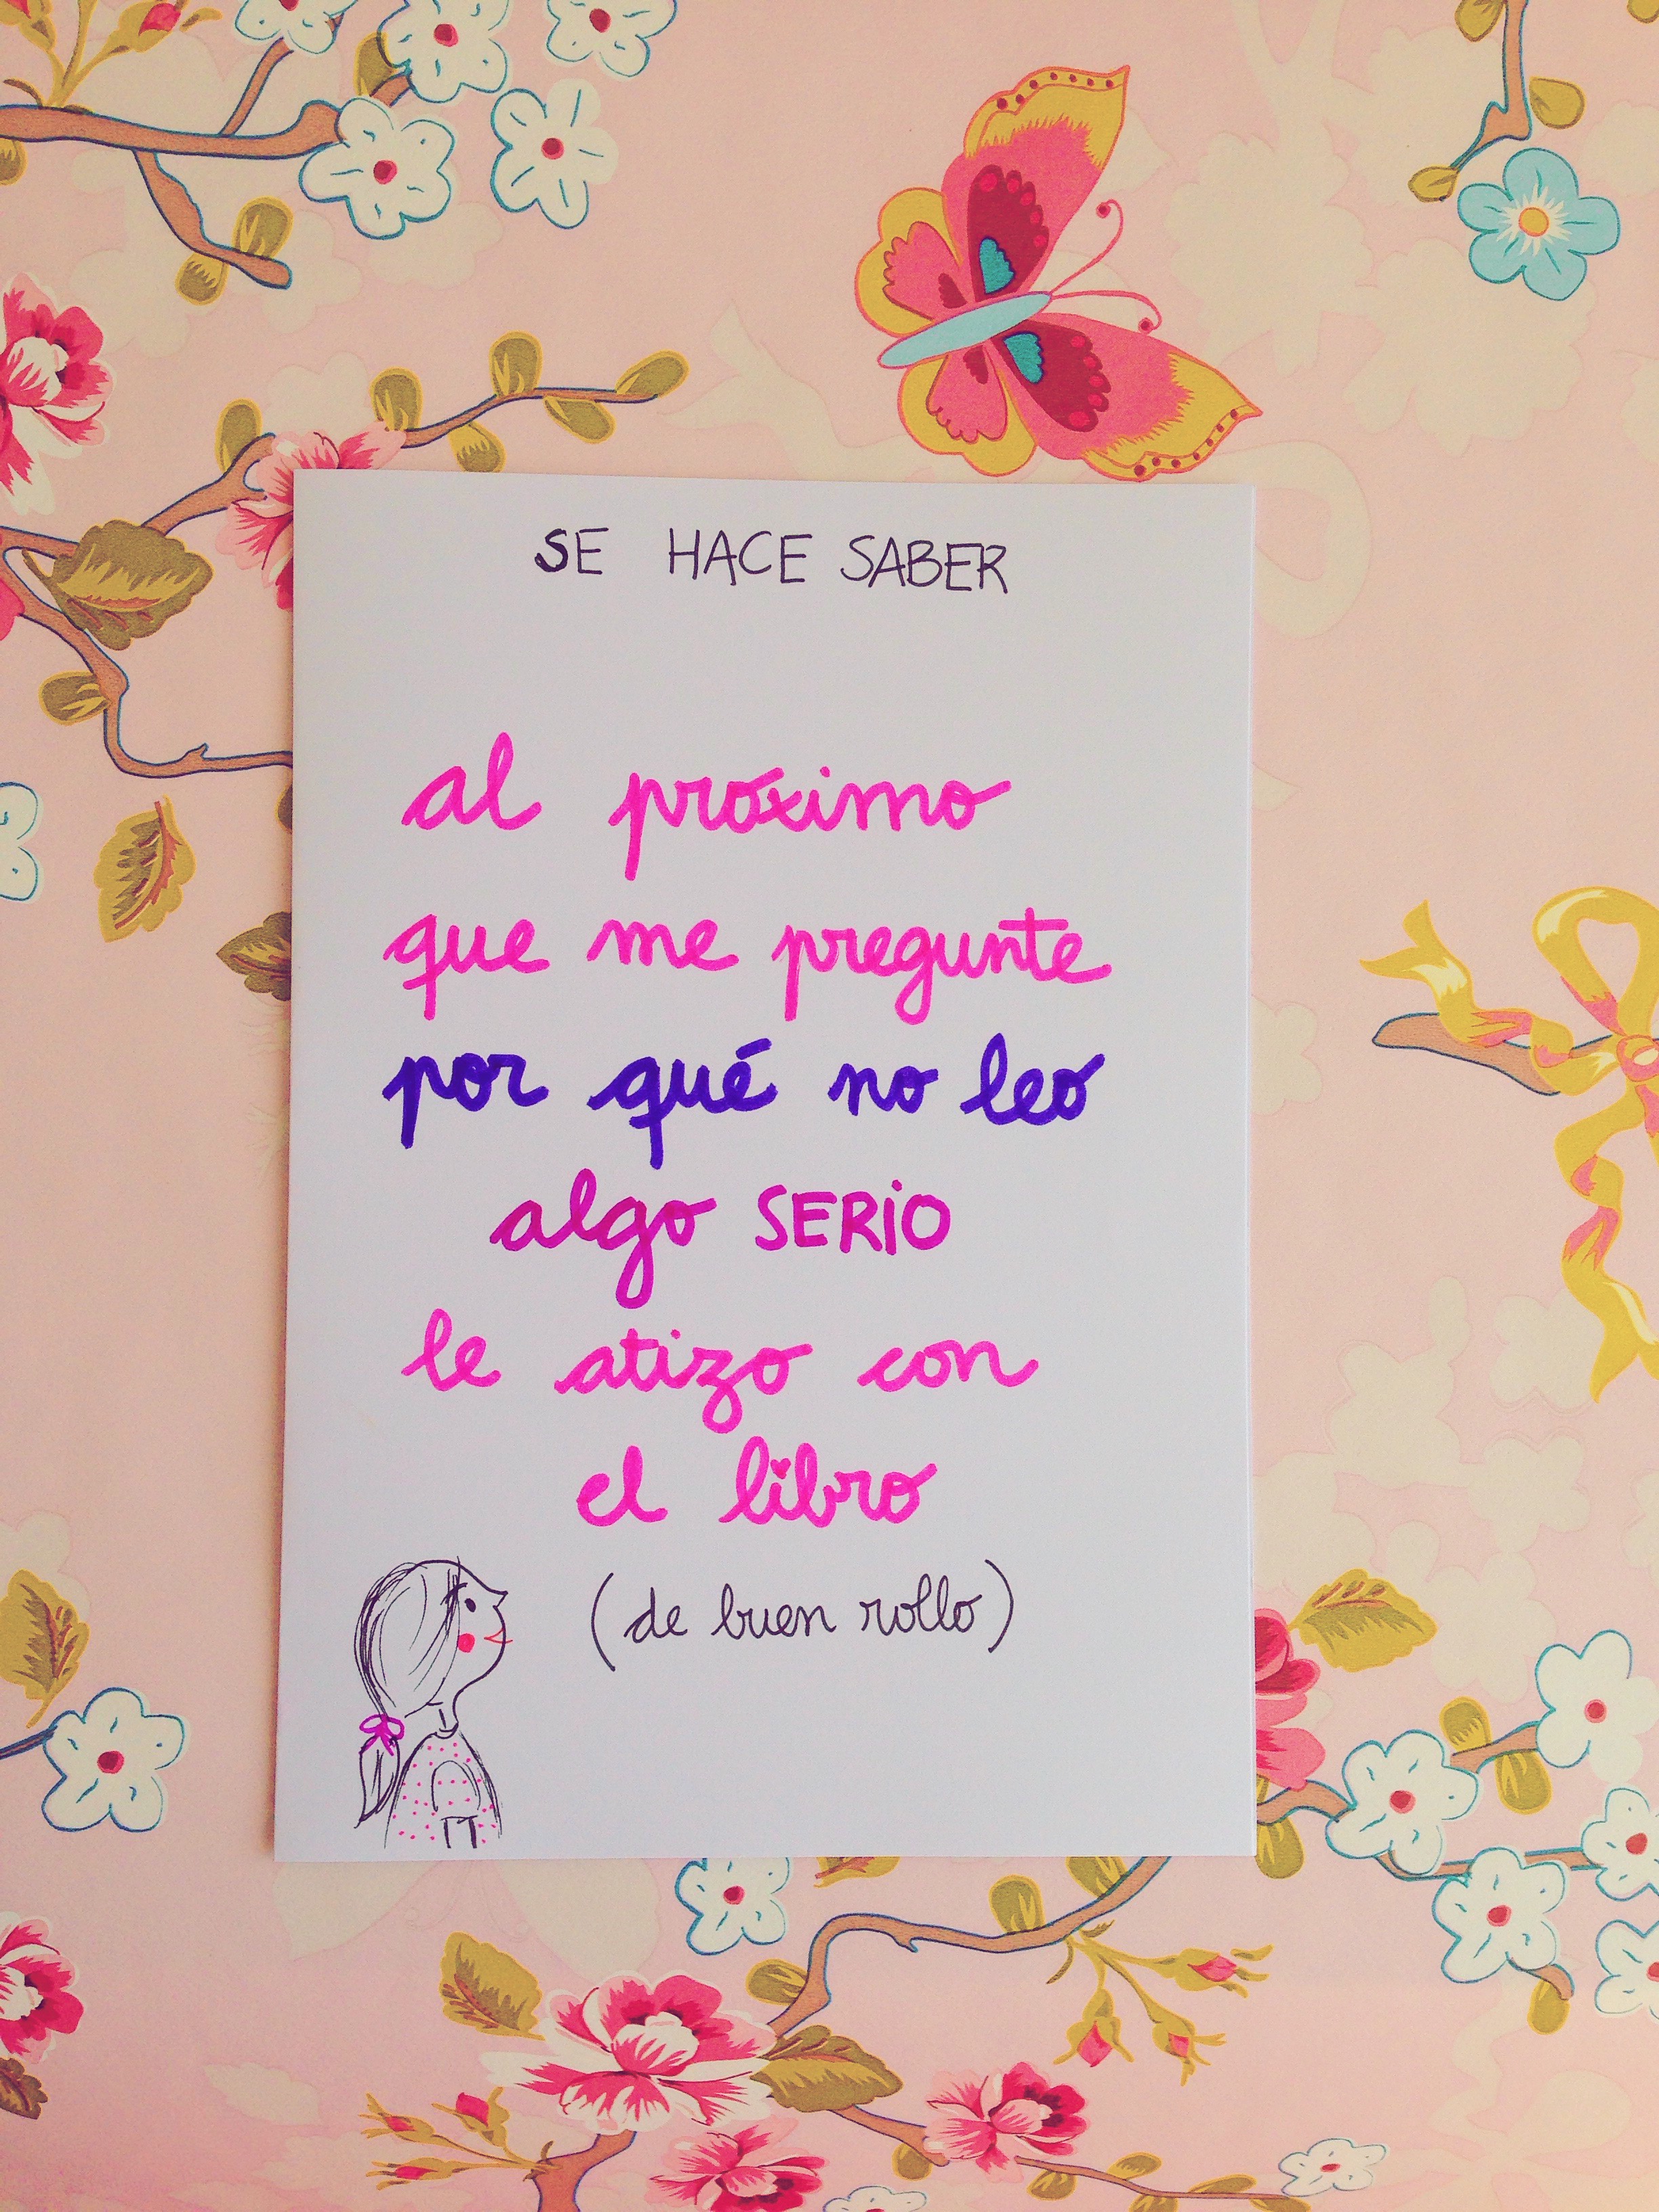 SE HACE SABER
al próximo
que me pregunte
por qué no leo
algo SERIO
le atizo con
el libro
(de buen rollo)